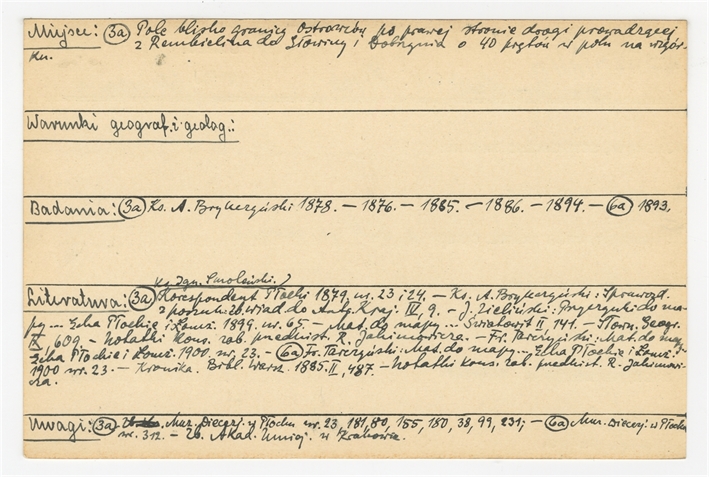 Miejsce: 3a Pole blisko granicy Ostrowów po prawej stronie drogi prowadzącej
z Rembielina do Słowiny i Dobrzynia o 40 prętów w polu na wzgór-
ku.
Warunki geograf. i geolog.:
Badania: 3a Ks. A. Brykczyński 1878. — 1876. — 1885. — 1886. — 1894. — 6a 1893.
Ks. Ign. Smoleński. )
Literatura: 3a Korespondent Płocki 1879, nr. 23 i 24. — Ks. A. Brykczyński: Sprawozd.
z poszuk. Zb. wiad. do Antr. Kraj. IV, 9. — J. Zieliński: Przyczynki do ma-
py... Echa Płockie i Łomż. 1899. nr. 65. — Mat. do mapy... Światowit II, 141. — Słown. Geogr.
IX, 609. — Notatki Kons. zab. przedhist. R. Jakimowicza. — Fr. Tarczyński: Mat. do mapy
Echa Płockie i Łomż. 1900. nr. 23. — 6a Fr. Tarczyński: Mat. do mapy... Echa Płockie i Łomż.
1900 nr. 23. — Kronika. Bibl. Warsz. 1885. II, 487. — Notatki Kons. zab. przedhist. R. Jakimowi-
cza.
Uwagi: 3a Muz. Diecezj. w Płocku nr. 23, 181, 80, 155, 180, 38, 99, 231; — 6a Muz. Diecezj. w Płocku
nr. 312. — Zb. Akad. Umiej. w Krakowie.